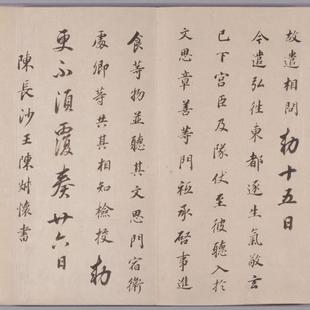 故遣相問 勅 十五日
今遣弘往東都遂生氣敬玄
已下宮臣及隊伏至彼聽入於
文思章善等門祗承啓事進
食等物並聽其文思門宿衛
處卿等共其相知檢校 勅
更不須覆奏廿六日
陳長沙王陳叔懷書